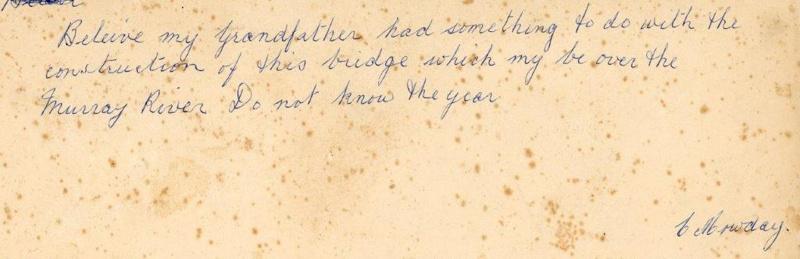 Beleive my Grandfather had something to do with the
construction of this bridge which my be over the
Murray River Do not know the year
C Mowday.